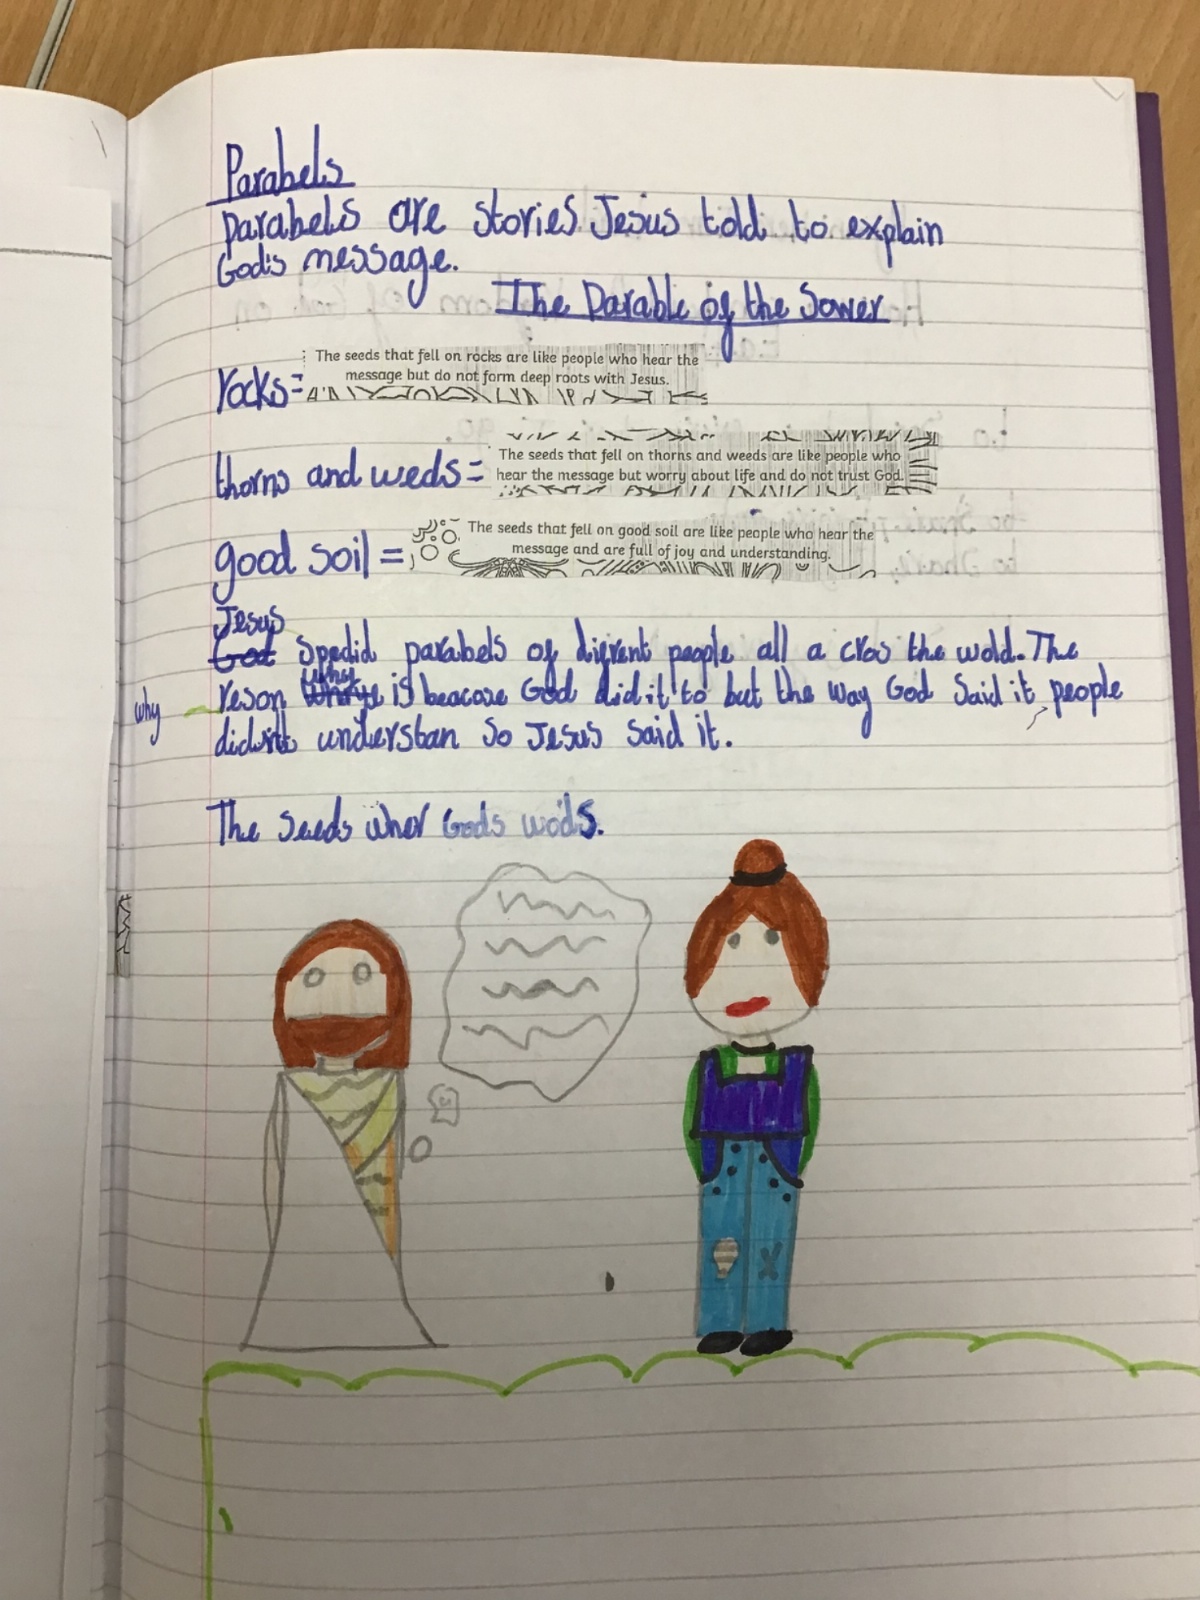 Parabels
Parabels are stories Jesus told to explain
God's message.
The Parable of the Sower
The seeds that fell on rocks are like people who hear the
rocks= message but do not form deep roots with Jesus.
The seeds that fell on thorns and weeds are like people who
thorns and weds= hear the message but worry about life and do not trust God.
The seeds that fell on good soil are like people who hear the
good soil = message and are full of joy and understanding.
Jesus
God Spedid parabels of digrent people all a cros the wold. The
why
why reson is beacose God did it to but the way God Said it people
didn't understan So Jesus said it.
The Seeds wher Gods wods.